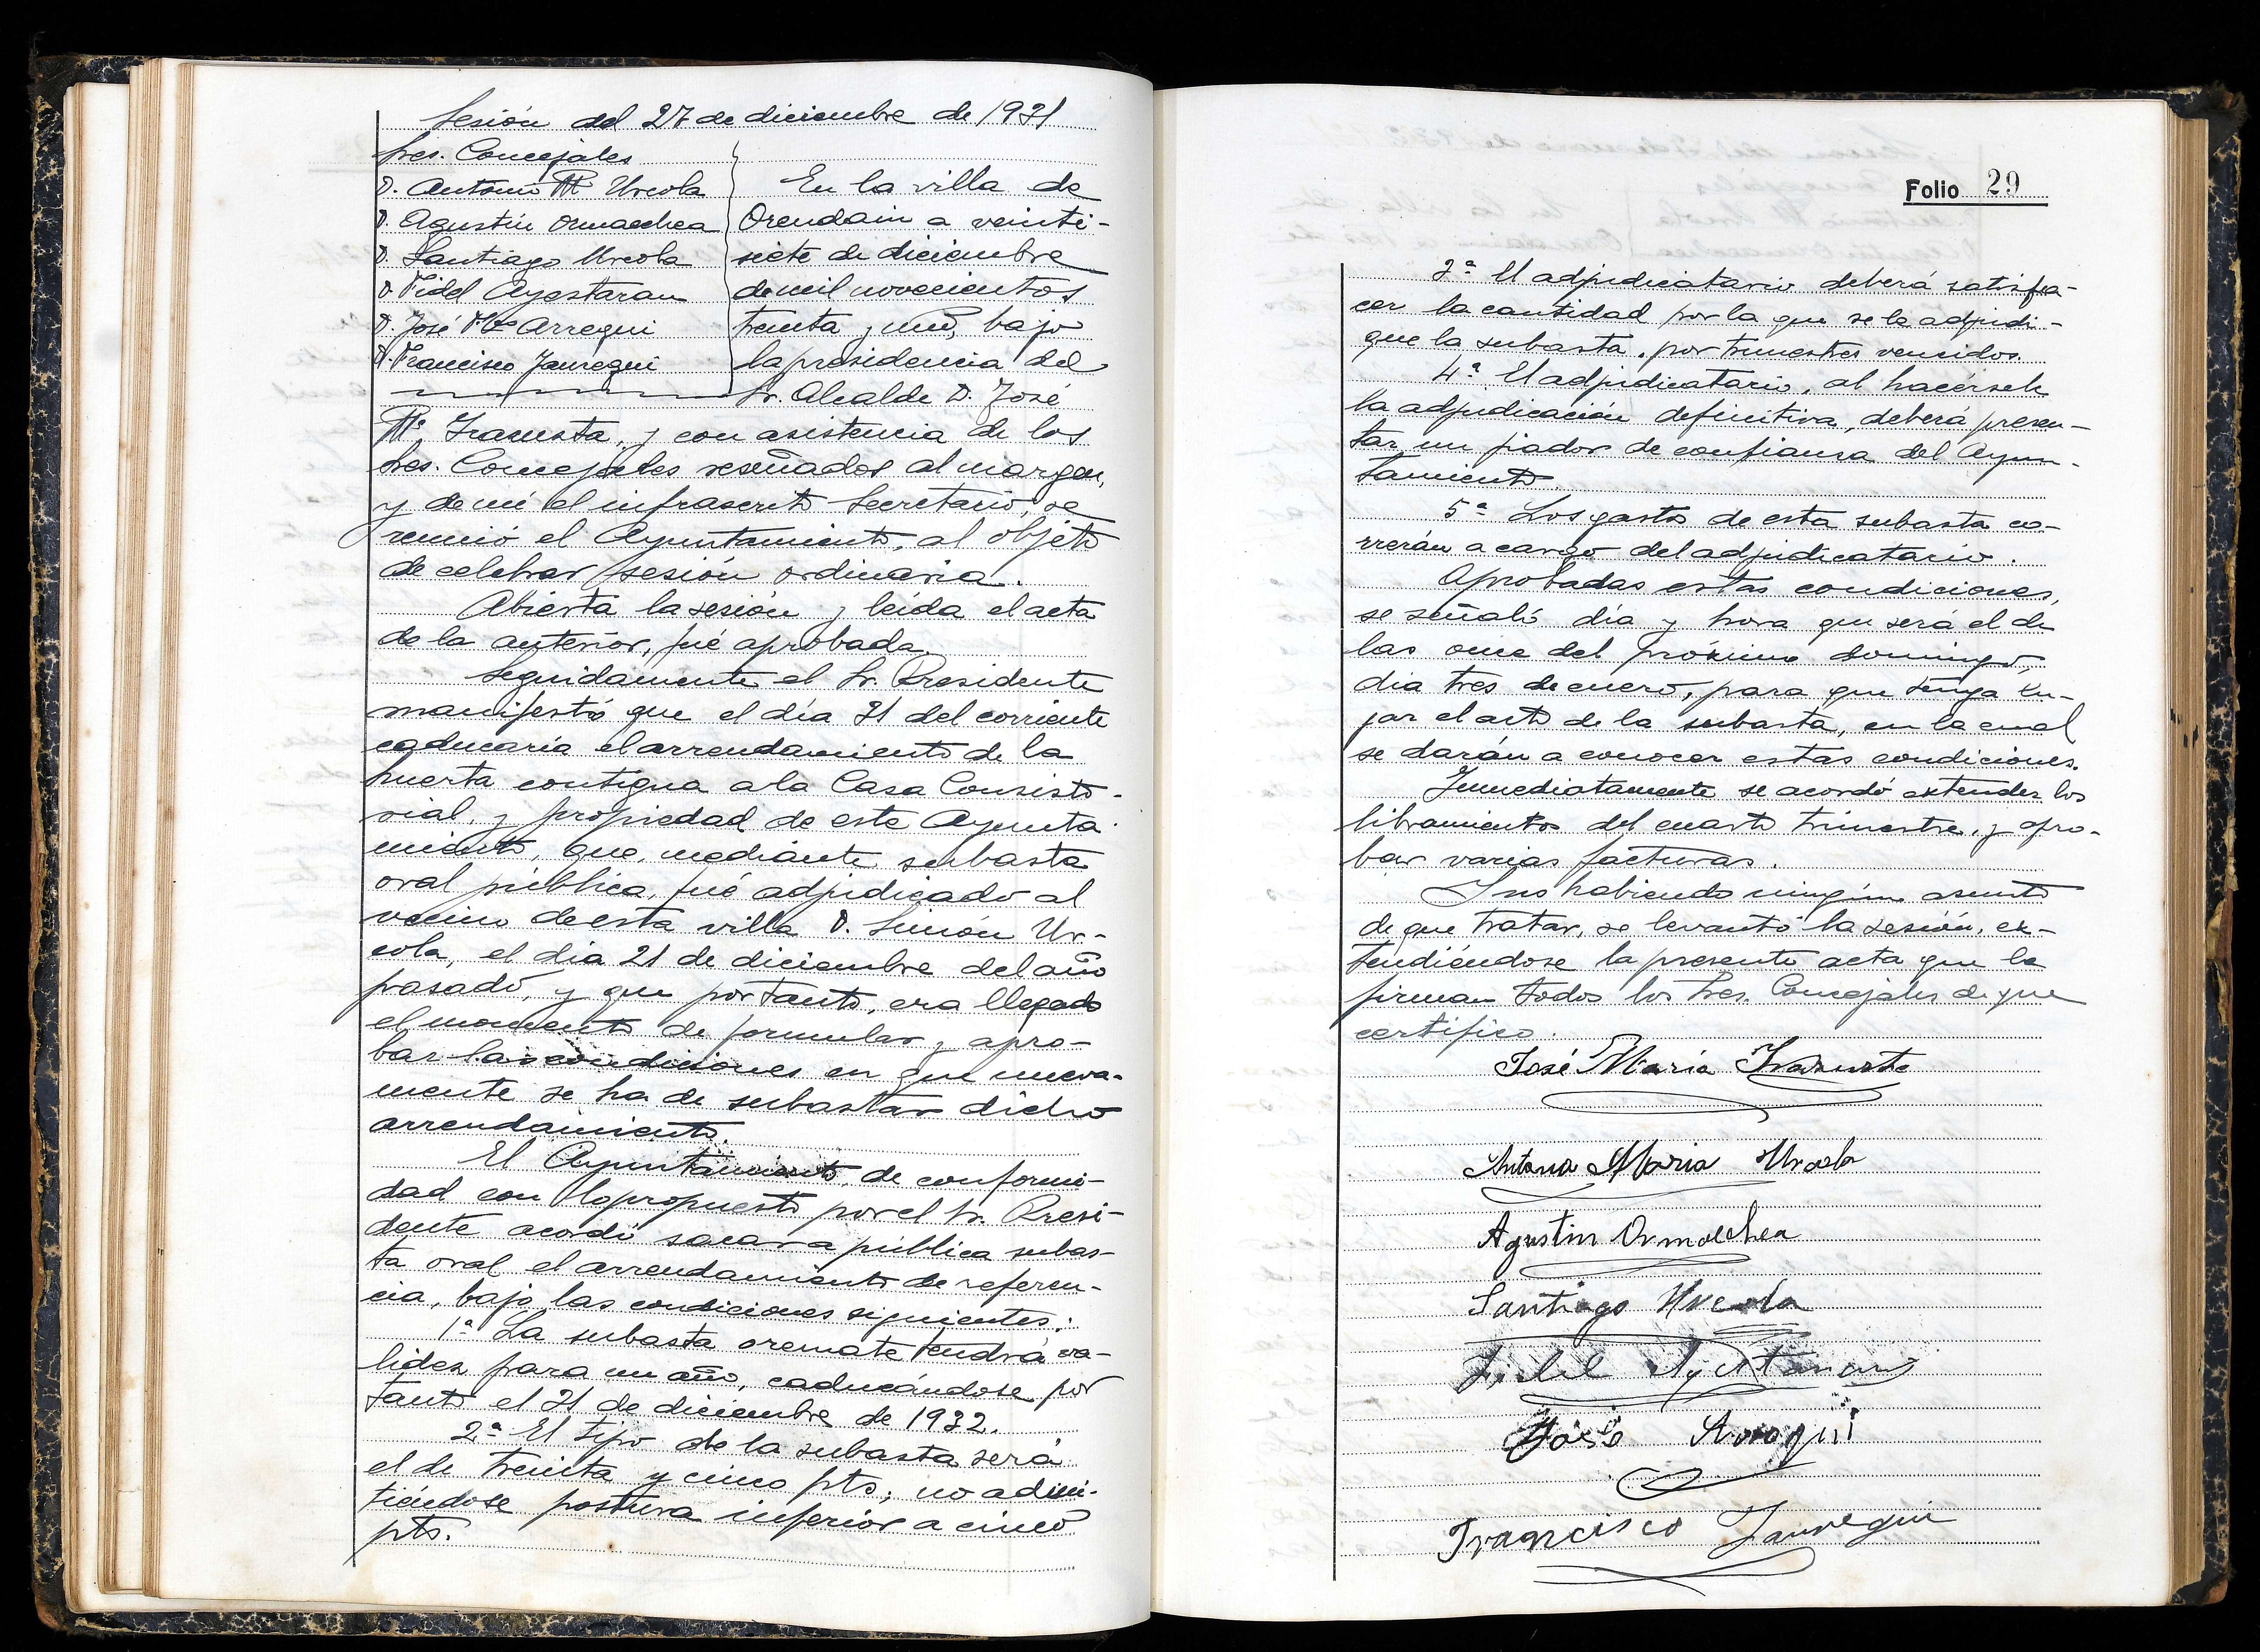 Sesión del 27 de diciembre de 1931
Sres. Concejales
D. Antonio Mª Urcola
D. Agustín Ormaechea
D. Santiago Urcola
D. Fidel Ayestaran
D. José Mª Arregui
D. Francisco Jauregui
En la villa de
Orendain a veinti-
siete de diciembre
de mil novecientos
treinta y uno, bajo
la presidencia del
Sr. Alcalde D. José
Mª Irazusta, y con asistencia de los
Sres. Concejales reseñados al margen,
y de mí el infrascrito Secretario, se
reunió el Ayuntamiento, al objeto
de celebrar sesión ordinaria.
Abierta la sesión y leída el acta
de la anterior, fué aprobada.
Seguidamente el Sr. Presidente
manifestó que el día 31 del corriente
caducaría el arrendamiento de la
huerta contigua a la Casa Consisto-
rial, y propiedad de este Ayunta-
miento, que, mediante subasta
oral pública, fué adjudicado al
vecino de esta villa D. Simón Ur-
cola, el día 21 de diciembre del año
pasado, y que por tanto, era llegado
el momento de formular y apro-
bar las condiciones en que nueva-
mente se ha de subastar dicho
arrendamiento.
El Ayuntamiento, de conformi-
dad con lo propuesto por el Sr. Presi-
dente acordó sacar a pública subas-
ta oral el arrendamiento de referen-
cia, bajo las condiciones siguientes:
1ª La subasta o remate tendrá va-
lidez para un año, caducándose por
tanto el 31 de diciembre de 1932.
2ª El tipo de la subasta será
el de treinta y cinco pts; no admi-
tiéndose postura inferior a cinco
pts.
Folio 29
3ª El adjudicatario deberá satisfa-
cer la cantidad por la que se le adjudi-
que la subasta, por trimestres vensidos.
4ª El adjudicatario, al hacérsele
la adjudicación definitiva, deberá presen-
tar un fiador de confianza del Ayun-
tamiento.
5ª Los gastos de esta subasta co-
rrerán a cargo del adjudicatario.
Aprobadas estas condiciones,
se señaló día y hora que será el de
las once del próximo domingo,
día tres de enero, para que tenga lu-
gar el acto de la subasta, en la cual
se darán a conocer estas condiciones.
Inmediatamente se acordó extender los
libramientos del cuarto trimestre, y apro-
bar varias facturas.
Y no habiendo ningún asunto
de que tratar, se levantó la sesión, ex-
tendiéndose la presente acta que la
firman todos los Sres. Concejales de que
certifico.
José Maria Irazusta
Antonio Maria Urcola
Agustin Ormaechea
Santiago Urcola
Fidel Ayestaran
José Arregui
Francisco Jauregui